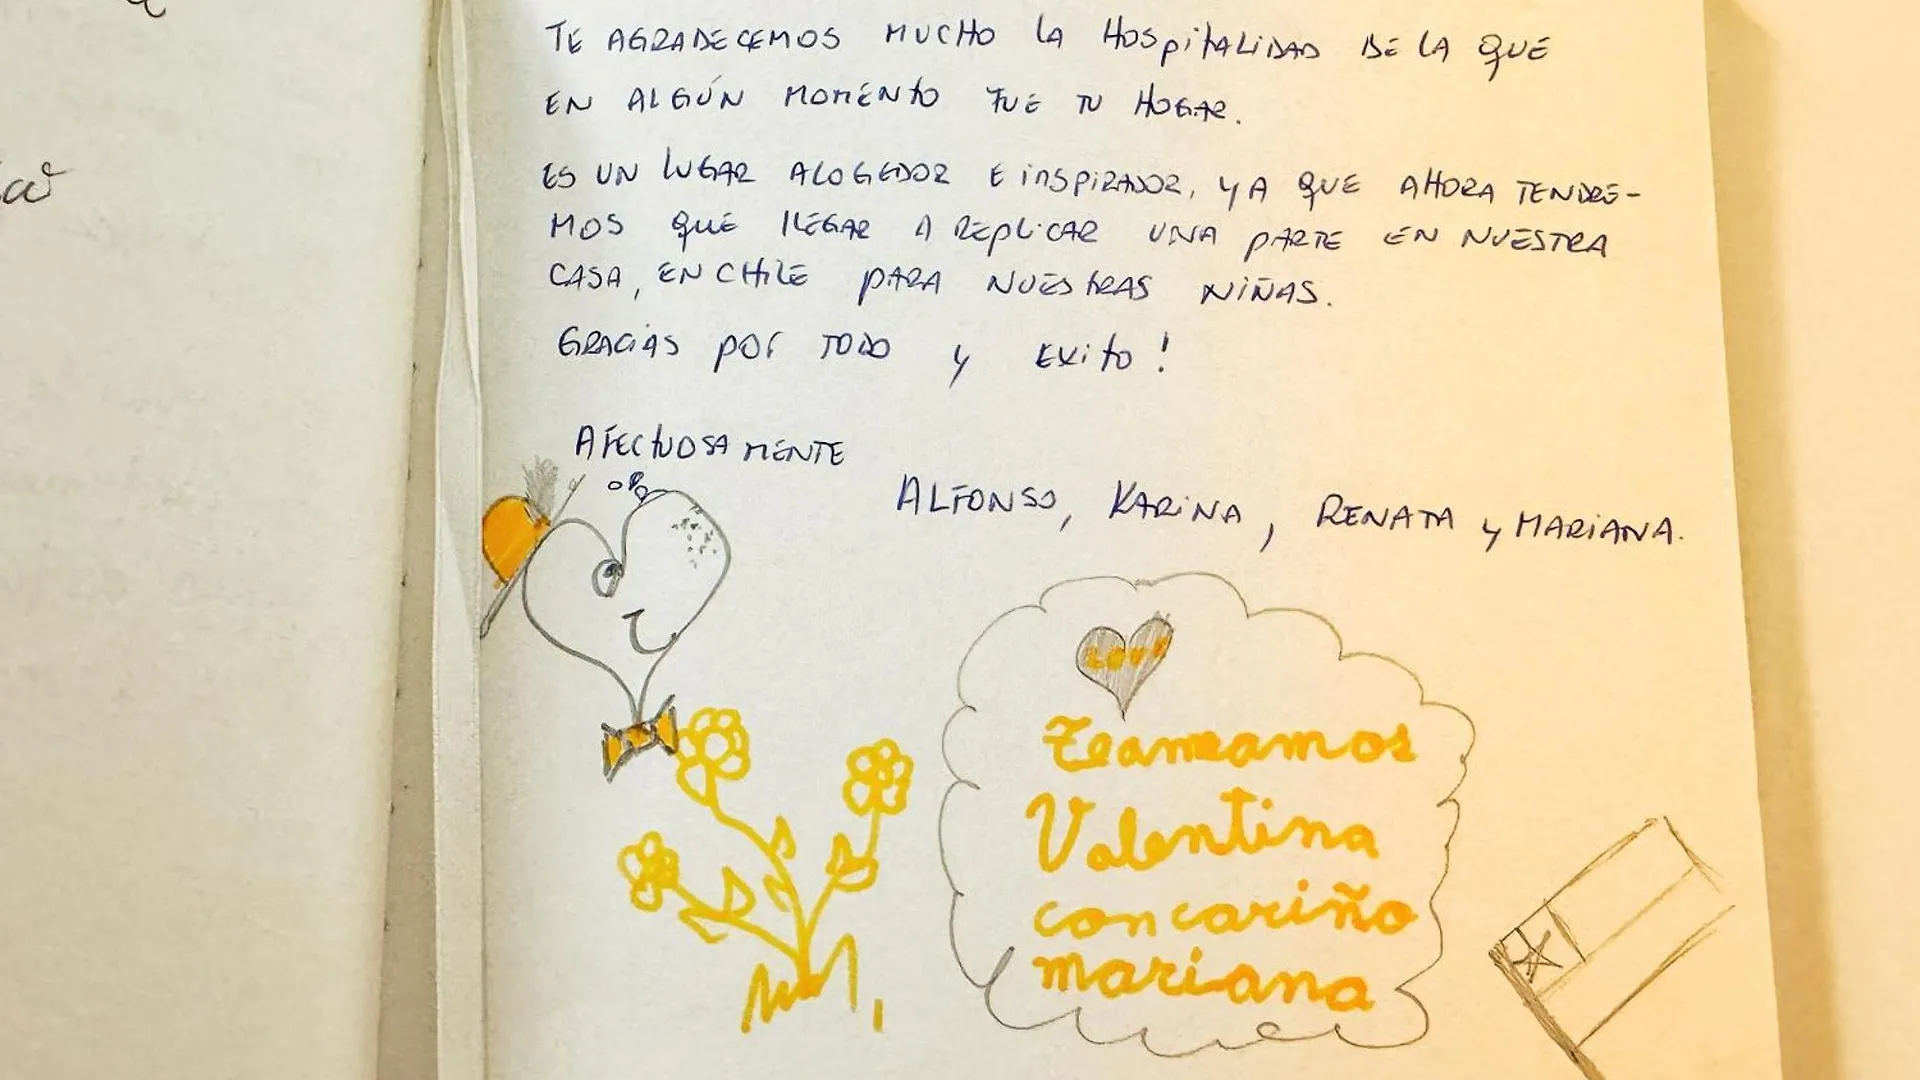 TE AGRADECEMOS MUCHO LA HOSPITALIDAD DE LA QUE
EN ALGÚN MOMENTO FUE TU HOGAR.
ES UN LUGAR ACOGEDOR E INSPIRADOR, YA QUE AHORA TENDRE-
MOS QUE LLEGAR A REPLICAR UNA PARTE EN NUESTRA
CASA, EN CHILE PARA NUESTRAS NIÑAS.
GRACIAS POR TODO Y EXITO!
AFECTUOSAMENTE
ALFONSO, KARINA, RENATA Y MARIANA.
LOVE
Teameamos
Valentina
con cariño
mariana